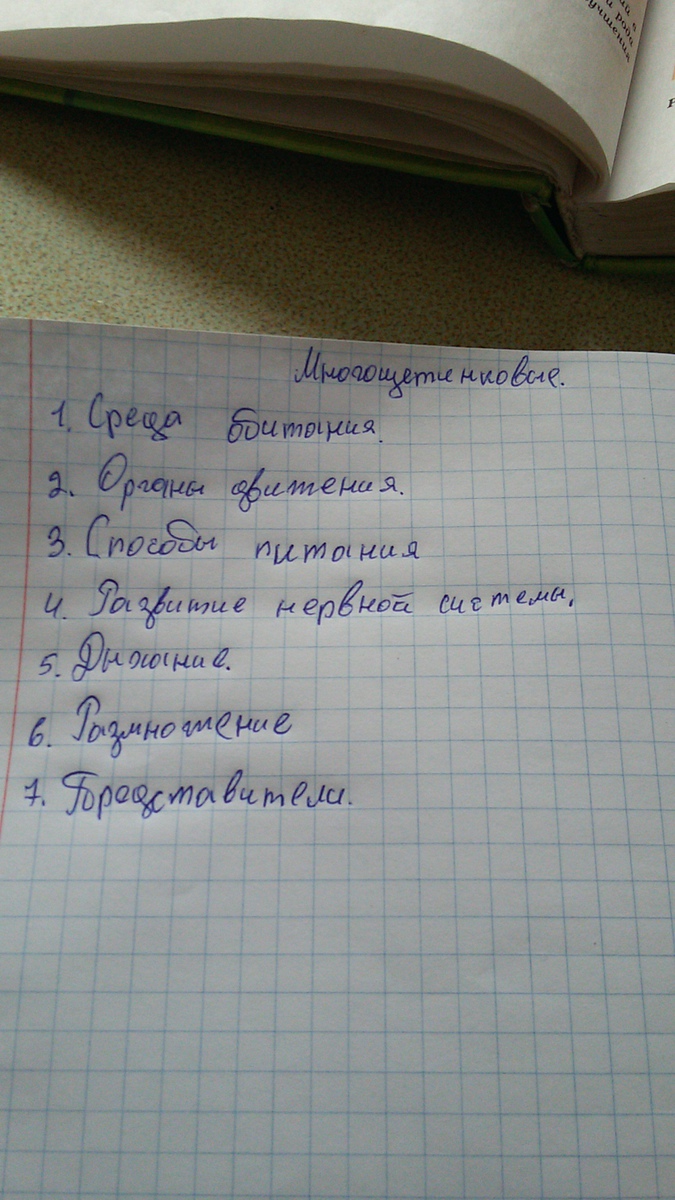 й в
и рода
учшения
Многощетинковые.
1. Среда обитания.
2. Органы движения.
3. Способы питания
4. Развитие нервной системы.
5. Дыхание.
6. Размножение
7. Представители.